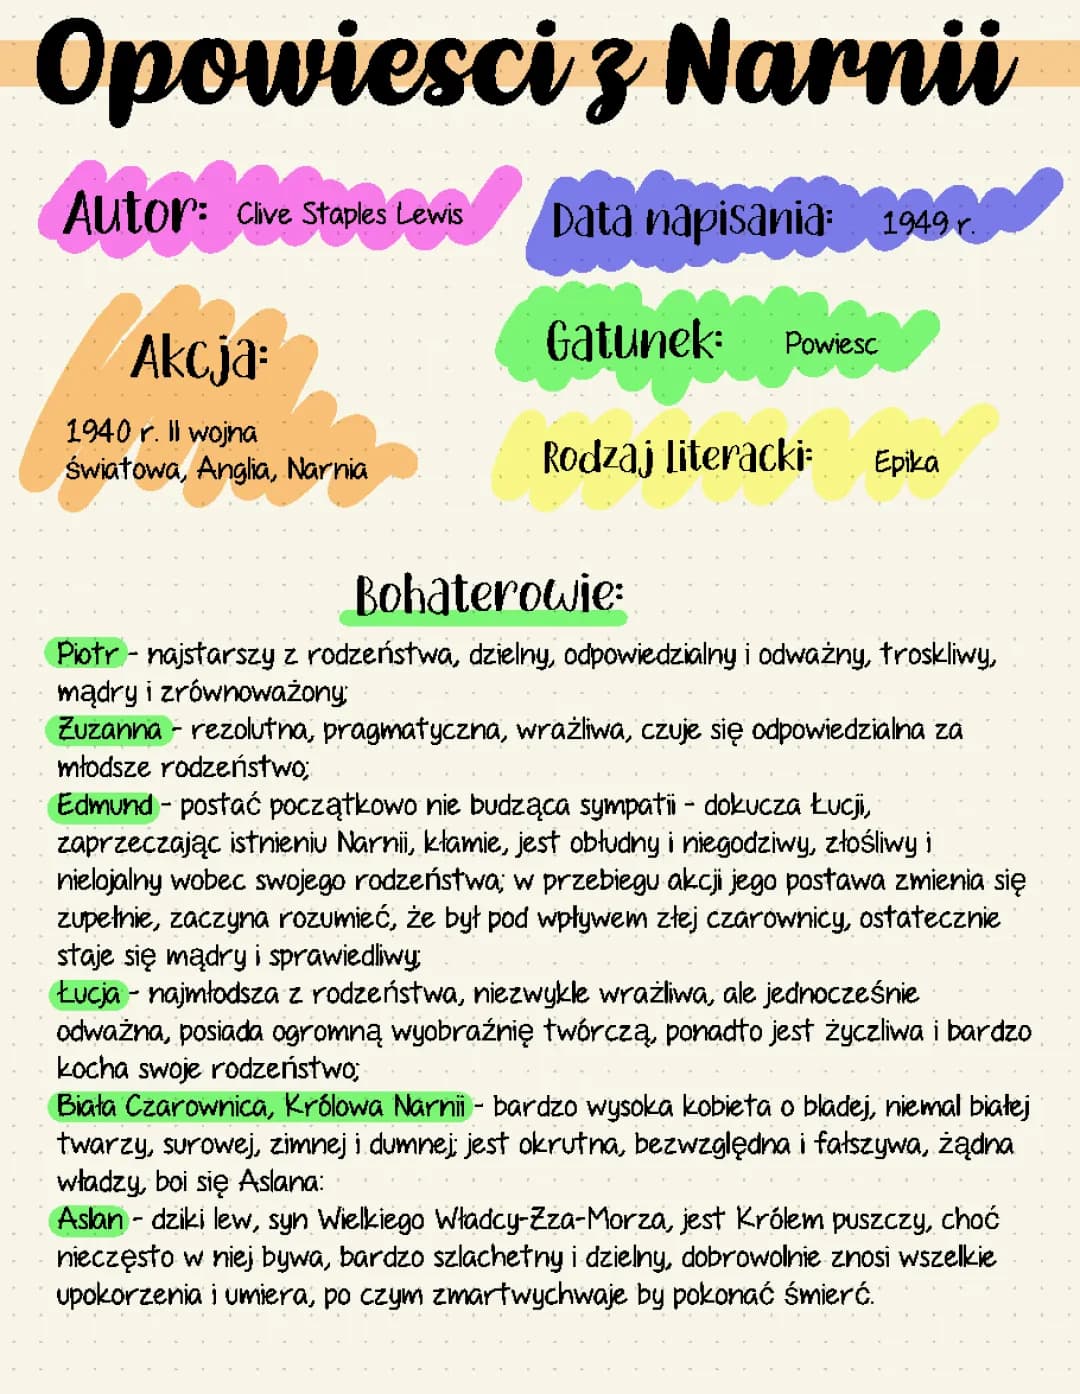 Opowiesci z Narnii
Autor: Clive Staples Lewis
Data napisania: 1949 r.
Akcja:
1940 r. II wojna
światowa, Anglia, Narnia
Gatunek: Powiesc
Rodzaj literacki: Epika
Bohaterowie:
Piotr - najstarszy z rodzeństwa, dzielny, odpowiedzialny i odważny, troskliwy,
mądry i zrównoważony;
Zuzanna - rezolutna, pragmatyczna, wrażliwa, czuje się odpowiedzialna za
młodsze rodzeństwo;
Edmund - postać początkowo nie budząca sympatii - dokucza Łucji,
zaprzeczając istnieniu Narnii, kłamie, jest obłudny i niegodziwy, złośliwy i
nielojalny wobec swojego rodzeństwa; w przebiegu akcji jego postawa zmienia się
zupełnie, zaczyna rozumieć, że był pod wpływem złej czarownicy, ostatecznie
staje się mądry i sprawiedliwy;
Łucja - najmłodsza z rodzeństwa, niezwykle wrażliwa, ale jednocześnie
odważna, posiada ogromną wyobraźnię twórczą, ponadto jest życzliwa i bardzo
kocha swoje rodzeństwo;
Biała Czarownica, Królowa Narnii - bardzo wysoka kobieta o bladej, niemal białej
twarzy, surowej, zimnej i dumnej; jest okrutna, bezwzględna i fałszywa, żądna
władzy, boi się Aslana:
Aslan - dziki lew, syn Wielkiego Władcy-Zza-Morza, jest Królem puszczy, choć
nieczęsto w niej bywa, bardzo szlachetny i dzielny, dobrowolnie znosi wszelkie
upokorzenia i umiera, po czym zmartwychwaje by pokonać śmierć.